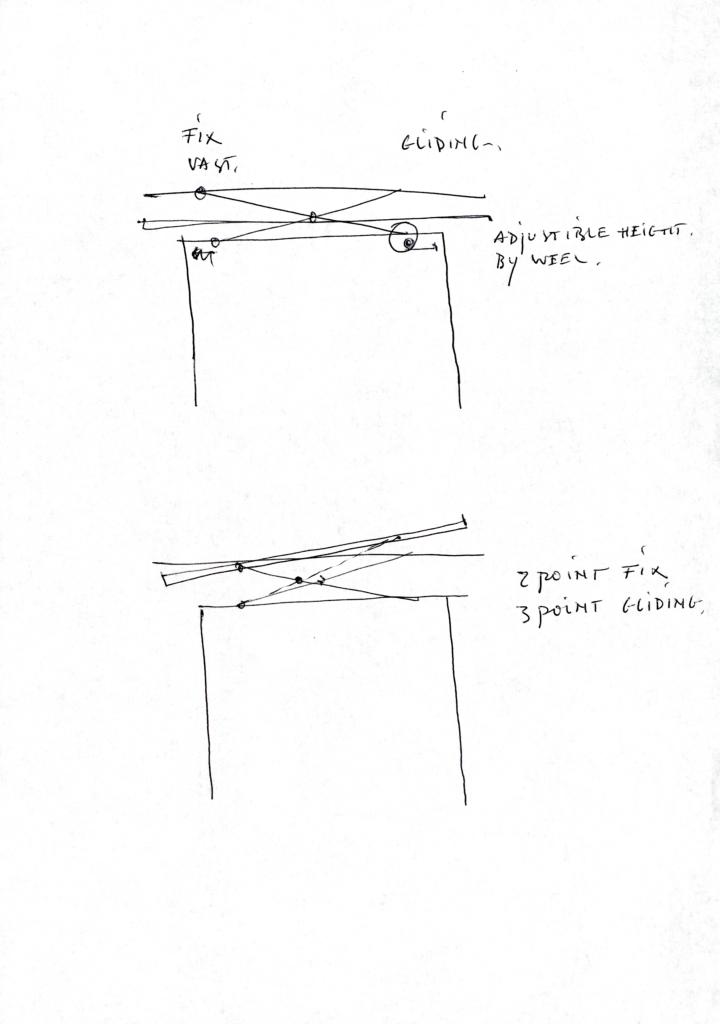 FIX
VAST.
GLIDING.
ADJUSTIBLE HEIGHT.
BY WEEL.
2 POINT FIX
3 POINT GLIDING.